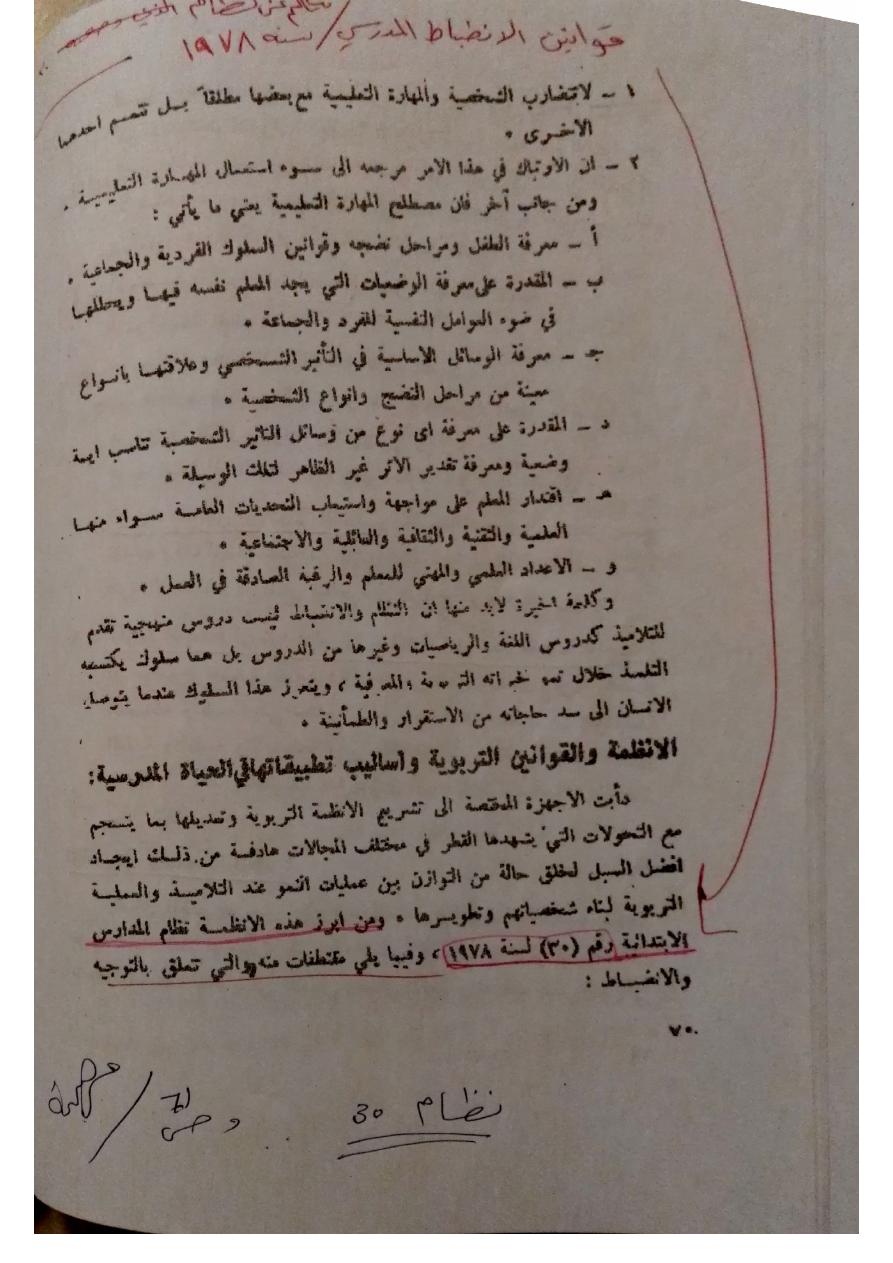 قوانين الانضباط المدرسي / لسنة ١٩٧٨
١ – لا تتضارب الشخصية والمهارة التعليمية مع بعضها مطلقاً بل تتمم احدهما
الاخرى •
٢ – ان الارتباك في هذا الامر مرجعه الى سوء استعمال المهارة التعليمية •
ومن جانب آخر فان مصطلح المهارة التعليمية يعني ما يأتي :
أ – معرفة الطفل ومراحل نضجه وقوانين السلوك الفردية والجماعية •
ب – المقدرة على معرفة الوضعيات التي يجد المعلم نفسه فيها ويحللها
في ضوء العوامل النفسية للفرد والجماعة •
جـ – معرفة الوسائل الاساسية في التأثير الشخصي وعلاقتها بانواع
معينة من مراحل النضج وانواع الشخصية •
د – المقدرة على معرفة اى نوع من وسائل التاثير الشخصية تناسب اية
وضعية ومعرفة تقدير الاثر غير الظاهر لتلك الوسيلة •
هـ – اقتدار المعلم على مواجهة واستيعاب التحديات العامة سواء منها
العلمية والتقنية والثقافية والعائلية والاجتماعية •
و – الاعداد العلمي والمهني للمعلم والرغبة الصادقة في العمل •
وكلمة اخيرة لابد منها ان النظام والانضباط ليس دروس منهجية تقدم
للتلاميذ كدروس اللغة والرياضيات وغيرها من الدروس بل هما سلوك يكتسبه
التلميذ خلال نمو خبراته والمعرفية ، ويتعزز هذا السلوك عندما يتوصل
الانسان الى سد حاجاته من الاستقرار والطمأنينة •
الانظمة والقوانين التربوية وأساليب تطبيقاتها في الحياة المدرسية :
دأبت الاجهزة المختصة الى تشريع الانظمة التربوية وتعديلها بما ينسجم
مع التحولات التي يشهدها القطر في مختلف المجالات هادفة من ذلك ايجاد
افضل السبل لخلق حالة من التوازن بين عمليات النمو عند التلاميذ والعملية
التربوية لبناء شخصياتهم وتطويرها • ومن ابرز هذه الانظمة نظام المدارس
الابتدائية رقم (٣٠) لسنة ١٩٧٨ ، وفيما يلي مقتطفات منه والتي تتعلق بالتوجيه
والانضباط :
٧٠
نظام 30